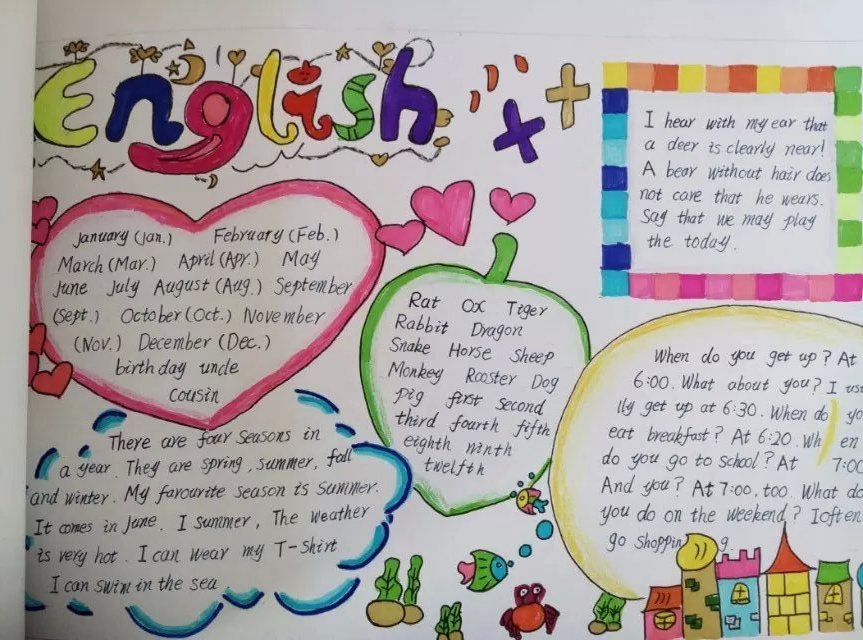 English
January (Jan.) February (Feb.)
March (Mar.) April (Apr.) May
June July August (Aug.) September
(Sept.) October (Oct.) November
(Nov.) December (Dec.)
birthday uncle
cousin
There are four seasons in
a year. They are spring, summer, fall
and winter. My favourite season is summer.
It comes in June. I summer, The weather
is very hot. I can wear my T-shirt
I can swim in the sea
Rat Ox Tiger
Rabbit Dragon
Snake Horse Sheep
Monkey Rooster Dog
Pig first second
third fourth fifth
eighth ninth
twelfth
I hear with my ear that
a deer is clearly near!
A bear without hair does
not care that he wears.
Say that we may play
the today.
When do you get up? At
6:00. What about you? I us
lly get up at 6:30. When do yo
eat breakfast? At 6:20. Wh en
do you go to school? At 7:00
And you? At 7:00, too. What do
you do on the weekend? I often
go shoppin g